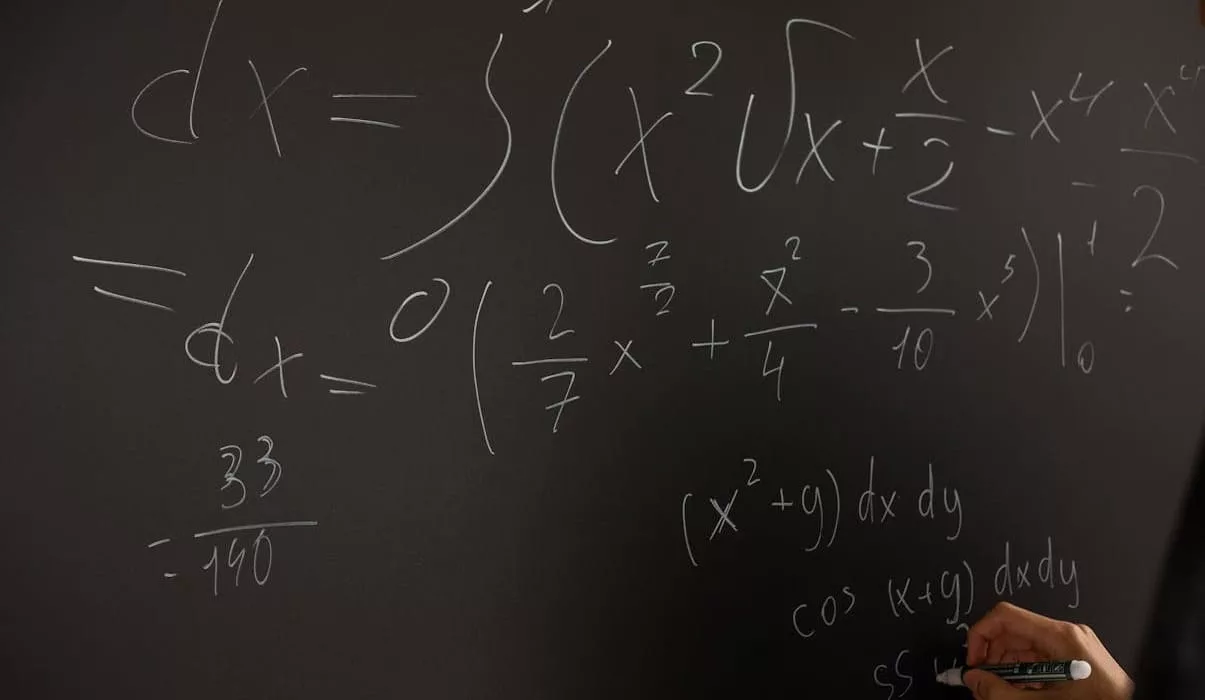 dx = ∫ (x² √x + x/2 - x⁴ - x⁴/2
= dx = 0 (2/7 x^(7/2) + x²/4 - 3/10 x⁵) |₀¹ =
= 33/140
(x² + y) dx dy
cos (x+y) dx dy